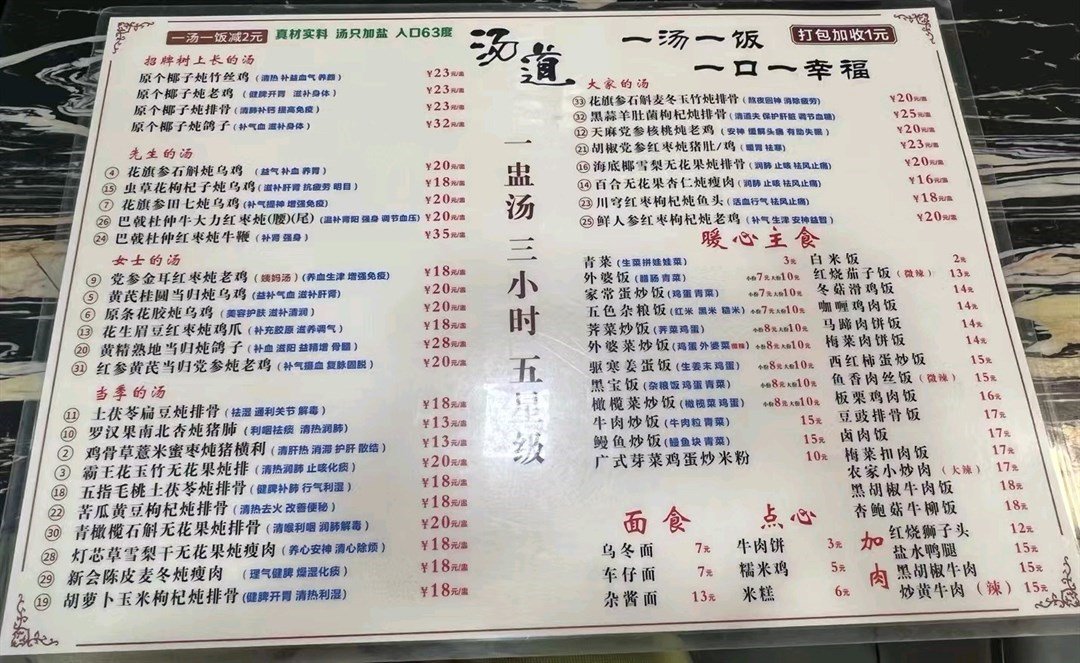 一汤一饭减2元
真材实料 汤只加盐 入口63度
汤道
一汤一饭
一口一幸福
打包加收1元
一盅汤 三小时 五星级
招牌树上长的汤
原个椰子炖竹丝鸡(清热 补益血气 养颜) ¥23元/盅
原个椰子炖老鸡(健脾开胃 滋补身体) ¥23元/盅
原个椰子炖排骨(清肺补钙 提高免疫) ¥23元/盅
原个椰子炖鸽子(补气血 滋补身体) ¥32元/盅
先生的汤
④ 花旗参石斛炖乌鸡(益气 补血 养胃) ¥20元/盅
⑮ 虫草花枸杞子炖乌鸡(滋补肝肾 抗疲劳 明目) ¥18元/盅
⑦ 花旗参田七炖乌鸡(补气提神 增强免疫) ¥20元/盅
㉖ 巴戟杜仲牛大力红枣炖(腰)(尾)(温补肾阳 强身 调节血压) ¥20元/盅
㉔ 巴戟杜仲红枣炖牛鞭(补肾 强身) ¥35元/盅
女士的汤
⑨ 党参金耳红枣炖老鸡(姨妈汤)(养血生津 增强免疫) ¥18元/盅
⑤ 黄芪桂圆当归炖乌鸡(益补气血 滋补肝肾) ¥18元/盅
⑥ 原条花胶炖乌鸡(美容护肤 滋补清润) ¥20元/盅
⑬ 花生眉豆红枣炖鸡爪(补充胶原 滋养调气) ¥18元/盅
⑳ 黄精熟地当归炖鸽子(补血 滋阳 益精增 骨髓) ¥28元/盅
㉛ 红参黄芪当归党参炖老鸡(补气摄血 复脉固脱) ¥20元/盅
当季的汤
⑪ 土茯苓扁豆炖排骨(祛湿 通利关节 解毒) ¥18元/盅
⑩ 罗汉果南北杏炖猪肺(利咽祛痰 清热润肺) ¥13元/盅
② 鸡骨草薏米蜜枣炖猪横利(清肝热 消滞 护肝 散结) ¥13元/盅
③ 霸王花玉竹无花果炖排(清热润肺 止咳化痰) ¥20元/盅
⑱ 五指毛桃土茯苓炖排骨(健脾补肺 行气利湿) ¥18元/盅
㉒ 苦瓜黄豆枸杞炖排骨(清热去火 改善便秘) ¥18元/盅
㉚ 青橄榄石斛无花果炖排骨(清喉利咽 润肺解毒) ¥20元/盅
㉘ 灯芯草雪梨干无花果炖瘦肉(养心安神 清心除烦) ¥18元/盅
㉙ 新会陈皮麦冬炖瘦肉(理气健脾 燥湿化痰) ¥18元/盅
⑲ 胡萝卜玉米枸杞炖排骨(健脾开胃 清热利湿) ¥18元/盅
大家的汤
㉝ 花旗参石斛麦冬玉竹炖排骨(熬夜回神 消除疲劳) ¥20元/盅
㉜ 黑蒜羊肚菌枸杞炖排骨(清道夫 保护肝脏 调节血糖) ¥25元/盅
⑫ 天麻党参核桃炖老鸡(安神 缓解头痛 有助失眠) ¥20元/盅
㉑ 胡椒党参红枣炖猪肚/鸡(暖胃 祛寒) ¥23元/盅
⑯ 海底椰雪梨无花果炖排骨(润肺 止咳 祛风止痛) ¥20元/盅
⑭ 百合无花果杏仁炖瘦肉(润肺 止咳 祛风止痛) ¥16元/盅
㉓ 川芎红枣枸杞炖鱼头(活血行气 祛风止痛) ¥18元/盅
㉕ 鲜人参红枣枸杞炖老鸡(补气 生津 安神益智) ¥20元/盅
暖心主食
青菜(生菜拼娃娃菜) 3元
外婆饭(腊肠青菜) 小份7元大份10元
家常蛋炒饭(鸡蛋青菜) 小份7元大份10元
五色杂粮饭(红米 黑米 糙米) 小份7元大份10元
荠菜炒饭(荠菜鸡蛋) 小份8元大份10元
外婆菜炒饭(鸡蛋 外婆菜微辣) 小份8元大份10元
驱寒姜蛋饭(生姜末鸡蛋) 小份8元大份10元
黑宝饭(杂粮饭鸡蛋青菜) 小份8元大份10元
橄榄菜炒饭(橄榄菜鸡蛋) 小份8元大份10元
牛肉炒饭(牛肉粒青菜) 15元
鳗鱼炒饭(鳗鱼块青菜) 15元
广式芽菜鸡蛋炒米粉 10元
白米饭 2元
红烧茄子饭(微辣) 13元
冬菇滑鸡饭 14元
咖喱鸡肉饭 14元
马蹄肉饼饭 14元
梅菜肉饼饭 14元
西红柿蛋炒饭 15元
鱼香肉丝饭(微辣) 15元
板栗鸡肉饭 16元
豆豉排骨饭 17元
卤肉饭 17元
梅菜扣肉饭 17元
农家小炒肉(大辣) 17元
黑胡椒牛肉饭 18元
杏鲍菇牛柳饭 18元
面食
乌冬面 7元
车仔面 7元
杂酱面 13元
点心
牛肉饼 3元
糯米鸡 5元
米糕 6元
加肉
红烧狮子头 12元
盐水鸭腿 15元
黑胡椒牛肉 15元
炒黄牛肉(辣) 15元